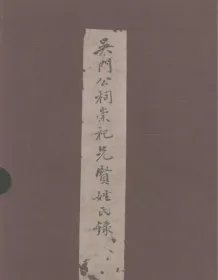 吳門公祠崇祀先賢姓氏錄